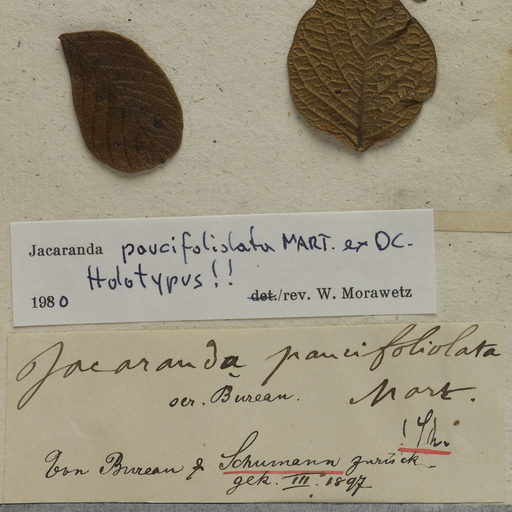 Jacaranda paucifolislata MART. ex DC.
Holotypus!!
1980 det./rev. W. Morawetz
Jacaranda paucifoliolata
scr. Bureau. Mart.
! Sch.
Von Bureau & Schumann zurück
gek. III. 1897